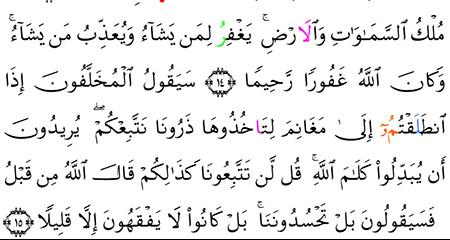 مُلْكُ ٱلسَّمَـٰوَٰتِ وَٱلَارْضِۚ يَغْفِرُ لِمَن يَشَآءُ وَيُعَذِّبُ مَن يَشَآءُۚ
وَكَانَ ٱللَّهُ غَفُورًا رَّحِيمًا ﴿١٤﴾ سَيَقُولُ ٱلْمُخَلَّفُونَ إِذَا
ٱنطَلَقْتُمُۥٓ إِلَىٰ مَغَانِمَ لِتَاخُذُوهَا ذَرُونَا نَتَّبِعْكُمْۖ يُرِيدُونَ
أَن يُبَدِّلُوا۟ كَلَـٰمَ ٱللَّهِۚ قُل لَّن تَتَّبِعُونَا كَذَٰلِكُمْ قَالَ ٱللَّهُ مِن قَبْلُ
فَسَيَقُولُونَ بَلْ تَحْسُدُونَنَاۚ بَلْ كَانُوا۟ لَا يَفْقَهُونَ إِلَّا قَلِيلًا ﴿١٥﴾